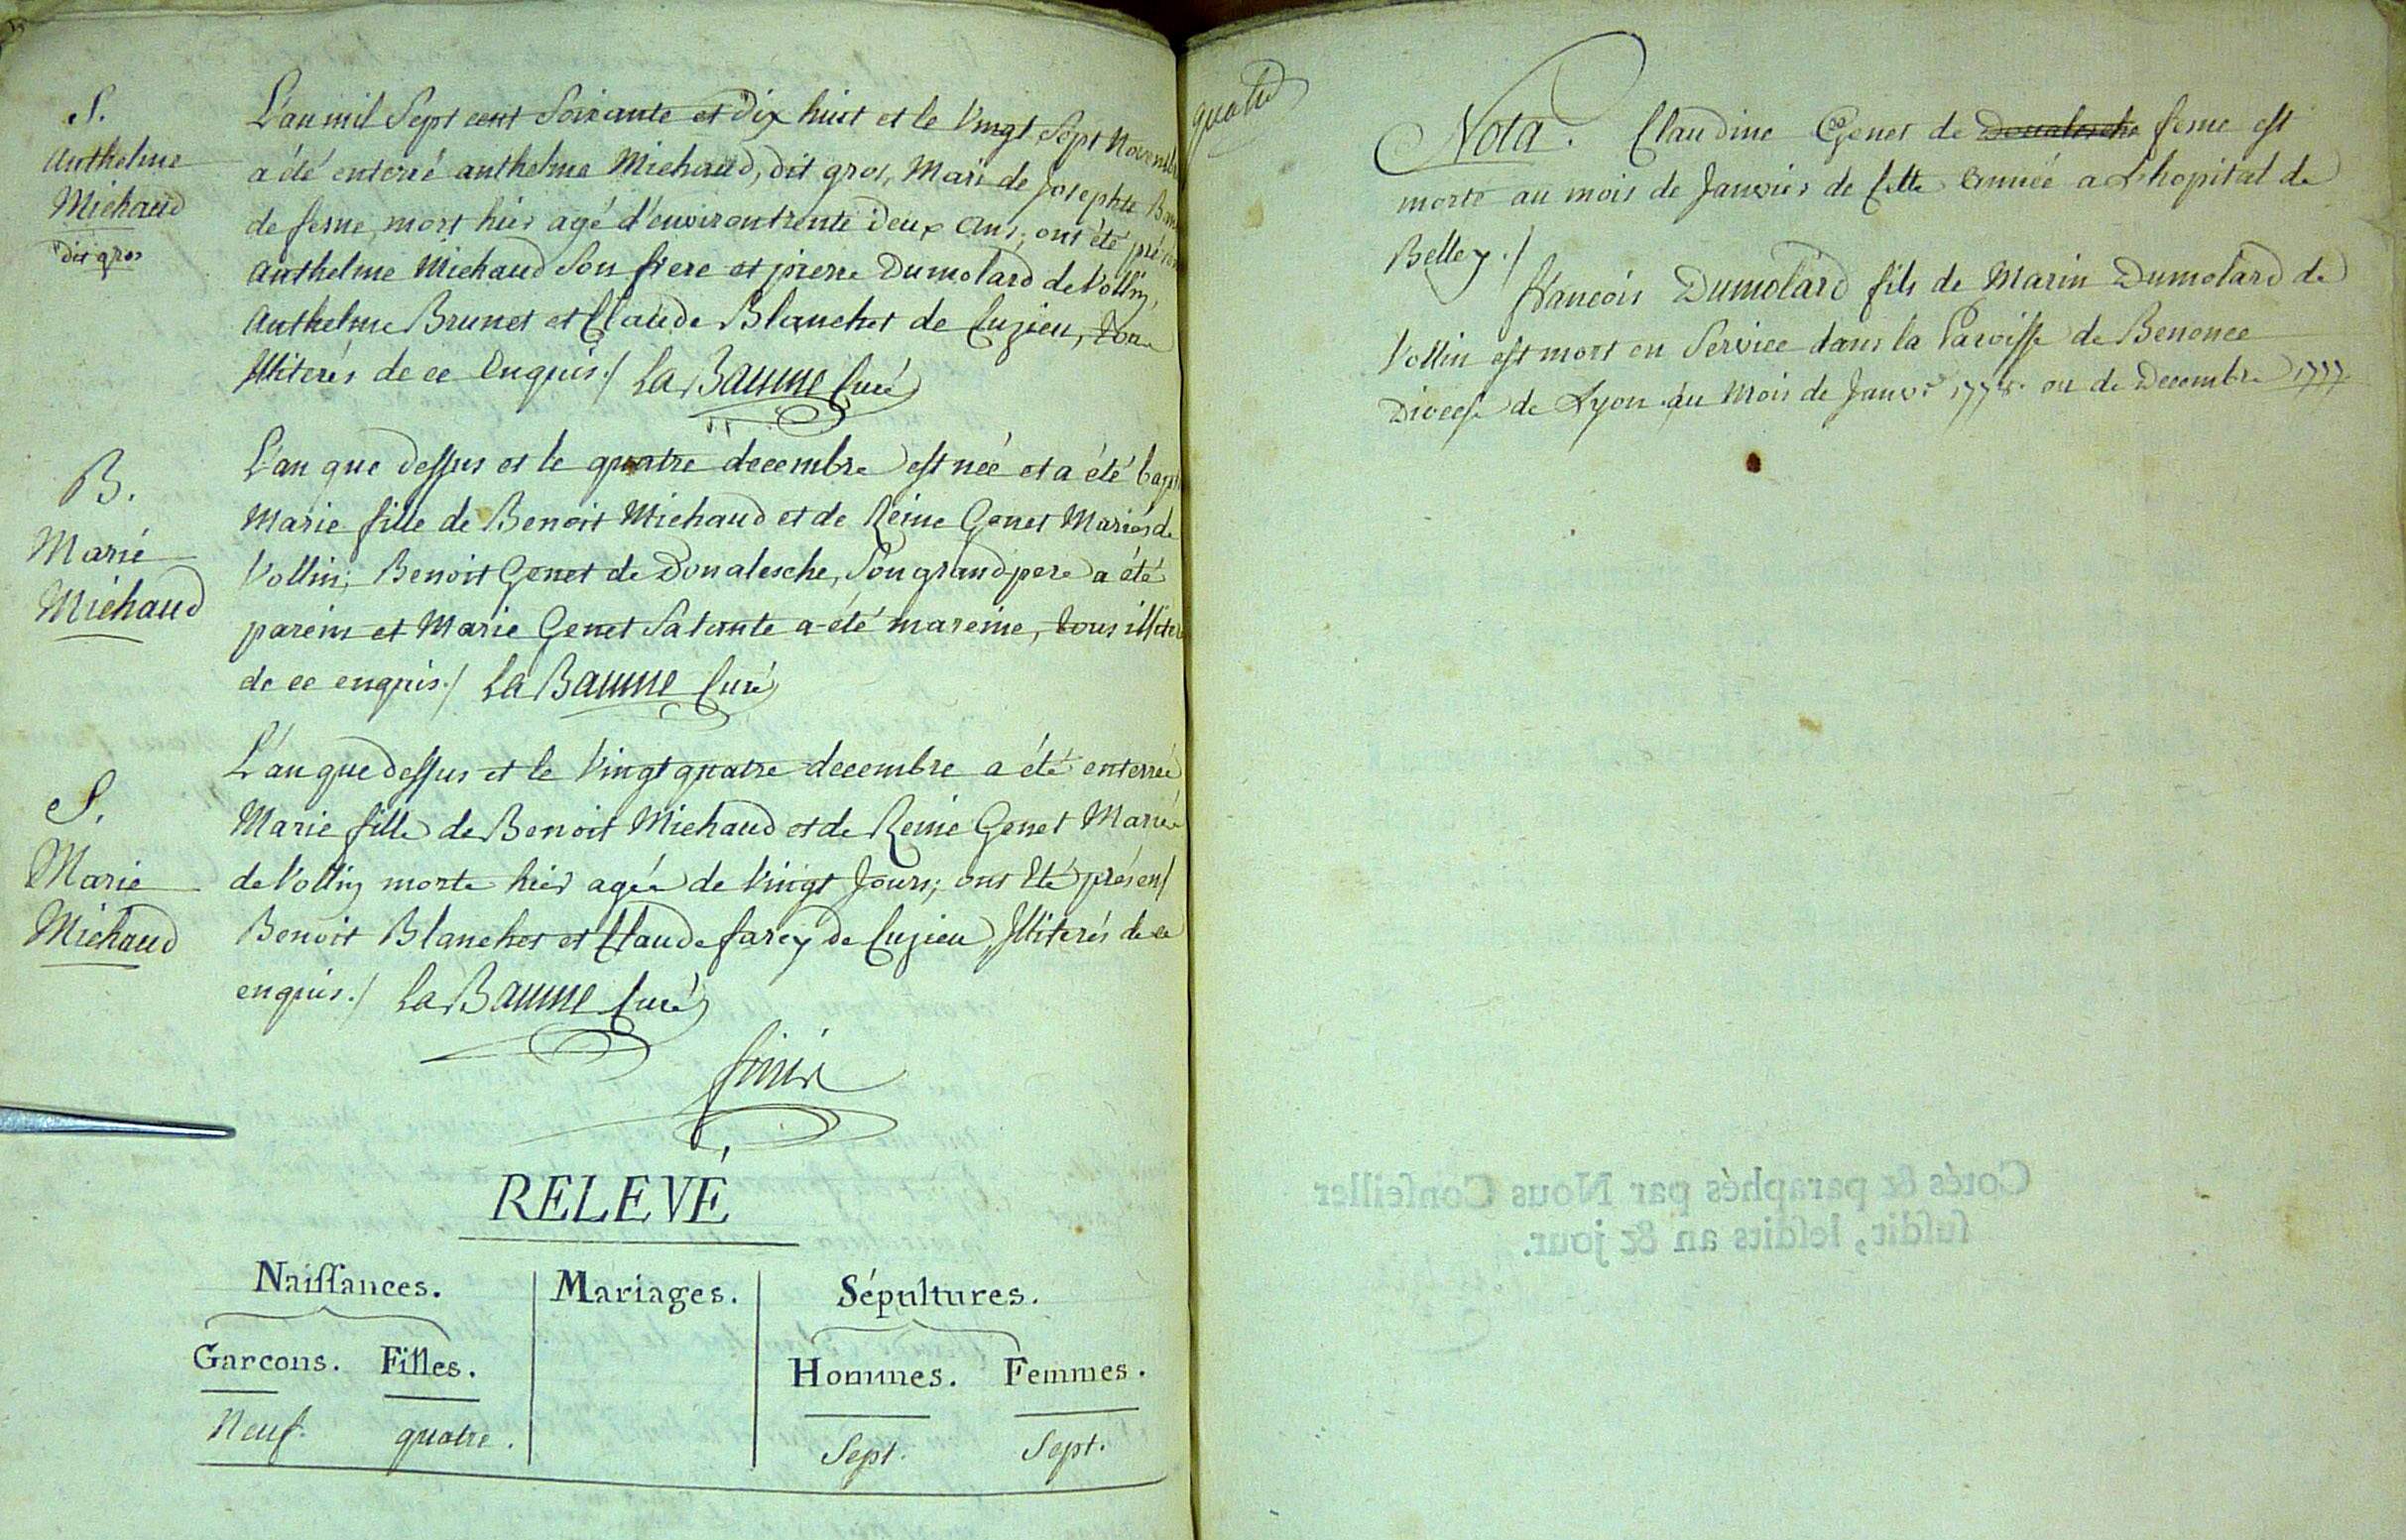 S.
Anthelme
Michaud
dit gros
L'an mil Sept cent Soixante et Dix huit et le Vingt Sept Novembre
a été enterré anthelme Michaud, dit gros, Mari de Josephte
de ferne, mort hier agé d'environ trente deux ans; ont été
Anthelme Michaud Son frere et pierre Dumolard de Vollin,
Anthelme Brunet et Claude Blanchet de Cuzieu,
Illiterés de ce Enquis./ La Baume Curé
B.
Marie
Michaud
L'an que dessus et le quatre decembre est neé et a été
Marie fille de Benoit Michaud et de Reine Genet Mariés de
Vollin; Benoit Genet de Donalesche, Son grand pere a été
parein et Marie Genet Sa tante a été mareine, tous
de ce enquis./ La Baume Curé
S.
Marie
Michaud
L'an que dessus et le Vingt quatre decembre a été enterreé
Marie fille de Benoit Michaud et de Reine Genet Mariés
de Vollin morte hier agée de Vingt Jours; ont Eté présens
Benoit Blanchet et Claude farcy de Cuzieu Illiterés de ce
enquis./ La Baume Curé
finis
RELEVÉ
Naissances. Mariages. Sépultures.
Garcons. Filles. Hommes. Femmes.
Neuf. quatre. Sept. Sept.
quatre
Nota. Claudine Genet de Donalesche ferne est
morte au mois de Janvier de Cette Année a L'hopital de
Belley./
francois Dumolard fils de Marin Dumolard de
Vollin est mort en Service dans la Paroisse de Benonce
Diocese de Lyon au Mois de Janvr 1778. ou de Decembre 1777.
Cotés & paraphés par Nous Conseiller
susdit, lesdits an & jour.